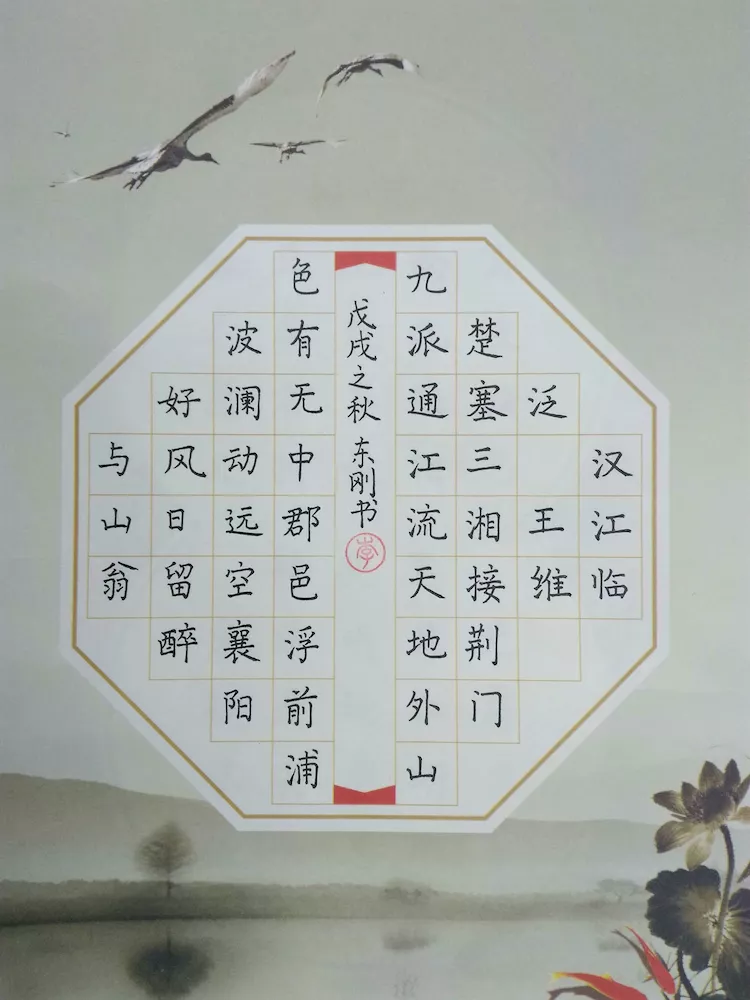 汉江临
泛 王维
楚塞三湘接荆门
九派通江流天地外山
戊戌之秋 东刚书
色有无中郡邑浮前浦
波澜动远空襄阳
好风日留醉
与山翁